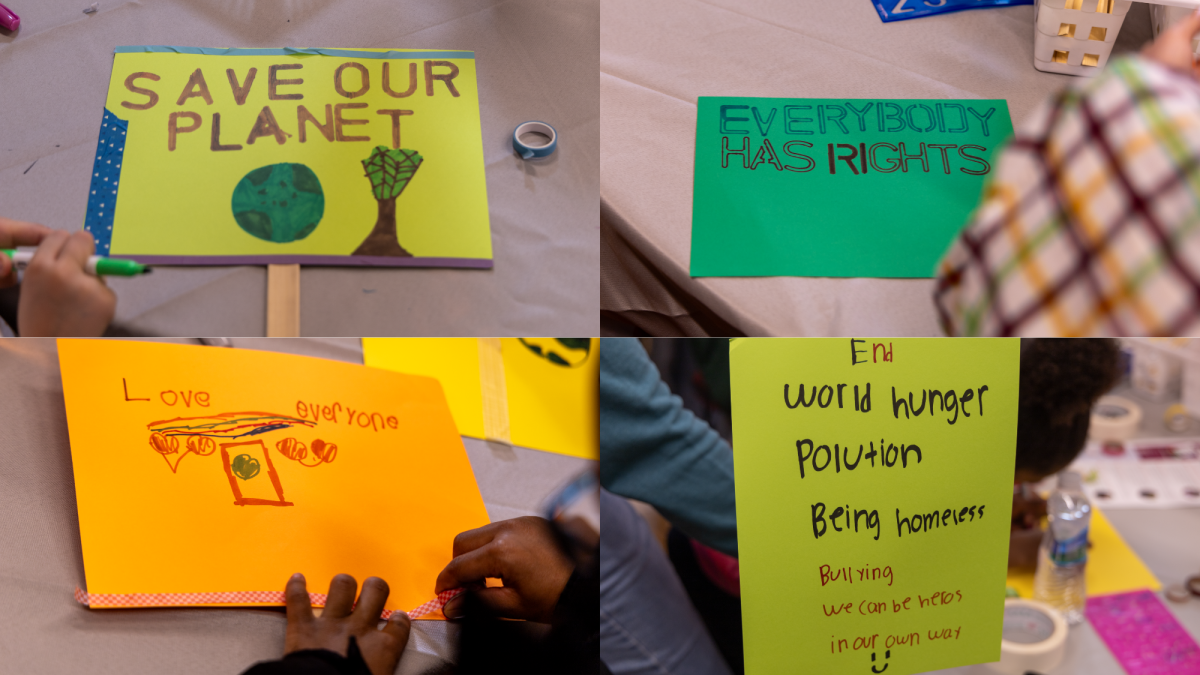 SAVE OUR
PLANET
EVERYBODY
HAS RIGHTS
Love
everyone
End
world hunger
Polution
Being homeless
Bullying
we can be heros
in our own way